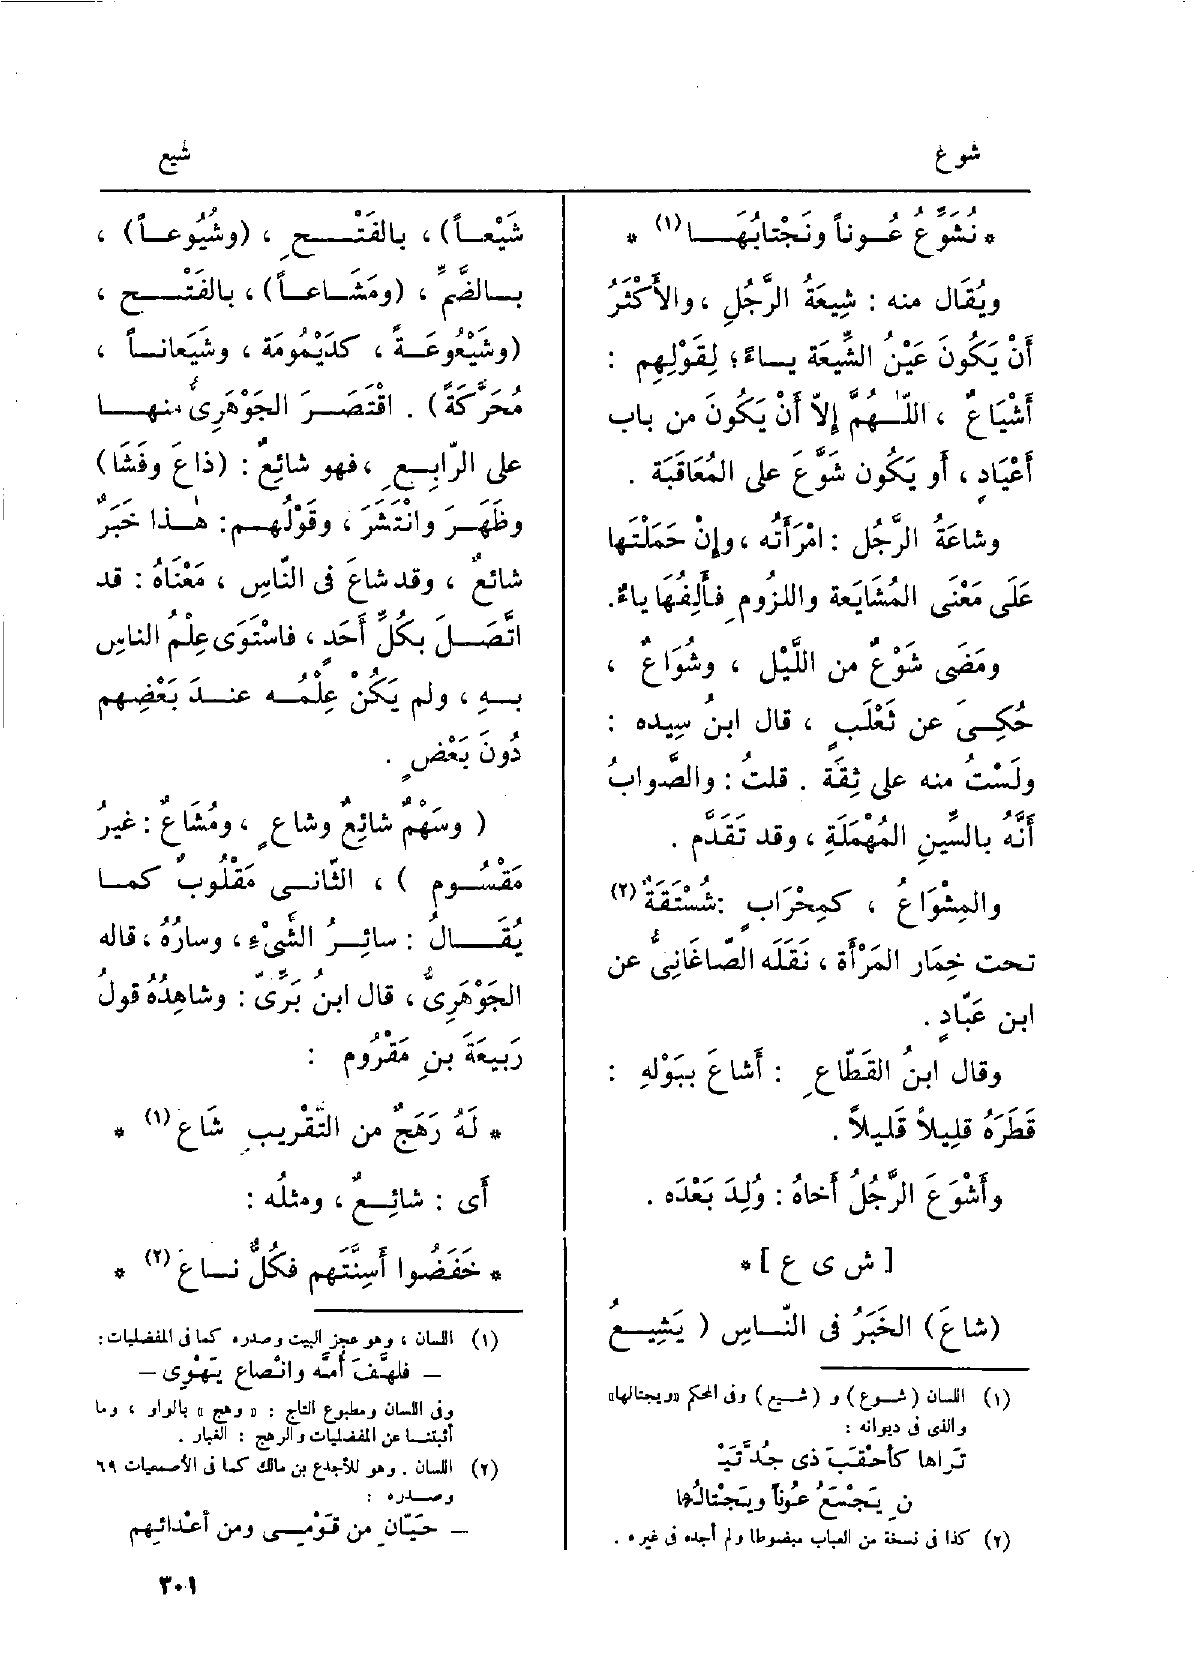 شوع
شيع
* نُشَوِّعُ عُوناً ونَجْتابُهَا (١) *
ويُقَال منه : شِيعَةُ الرَّجُلِ ، والأَكْثَرُ
أَنْ يَكُونَ عَيْنُ الشِّيعَة ياءً ؛ لِقَوْلِهِم :
أَشْيَاعٌ ، اللّٰهُمَّ إِلاّ أَنْ يَكُونَ من باب
أَعْيَادٍ ، أَو يَكُون شَوَّعَ على المُعَاقَبَة .
وشاعَةُ الرَّجُل : امْرَأَتُه ، وإِنْ حَمَلْتَها
عَلَى مَعْنَى المُشَايَعة واللزُومِ فأَلِفُهَا ياءٌ.
ومَضَى شَوْعٌ من اللَّيْل ، وشُوَاعٌ ،
حُكِىَ عن ثَعْلَبٍ ، قال ابنُ سِيده :
ولَسْتُ منه على ثِقَة . قلتُ : والصَّوابُ
أَنَّهُ بالسِّينِ المُهْمَلَةِ ، وقد تَقَدَّم .
والمِشْوَاعُ ، كمِحْرَابٍ : شُسْتَقَةٌ (٢)
تحت خِمَار المَرْأَة ، نَقَلَه الصّاغَانِىُّ عن
ابن عَبّادٍ .
وقال ابنُ القَطّاعِ : أَشاعَ ببَوْلِهِ :
قَطَرَهُ قلِيلاً قَليلاً .
وأَشْوَعَ الرَّجُلُ أَخاهُ : وُلِدَ بَعْدَه .
[ ش ى ع ] *
(شاعَ) الخَبَرُ فى النّاسِ ( يَشِيعُ
(١) اللسان (شوع) و (شيع) وفى المحكم «ويجتالها»
والذى فى ديوانه :
تَراها كأَحْقَبَ ذى جُدَّتَيْـ
نِ يَجْمَعُ عُوناً ويَجْتالُها
(٢) كذا فى نسخة من العباب مضبوطا ولم أجده فى غيره .
شَيْعاً) ، بالفَتْحِ ، (وشُيُوعاً) ،
بالضَّمِّ ، (ومَشَاعاً) ، بالفَتْح ،
(وشَيْعُوعَةً ، كدَيْمُومَة ، وشَيَعاناً ،
مُحَرَّكَةً) . اقْتَصَرَ الجَوْهَرِىُّ منها
على الرّابِعِ ، فهو شائِعٌ : (ذاعَ وفَشَا)
وظَهَرَ وانْتَشَرَ ، وقَوْلُهم : هٰذا خَبَرٌ
شائعٌ ، وقد شاعَ فى النّاسِ ، مَعْنَاهُ : قد
اتَّصَلَ بكُلِّ أَحَدٍ ، فاسْتَوَى عِلْمُ الناسِ
بهِ ، ولم يَكُنْ عِلْمُه عندَ بَعْضِهم
دُونَ بَعْضٍ .
( وسَهْمٌ شائِعٌ وشاعٍ ، ومُشَاعٌ : غيرُ
مَقْسُوم ) ، الثّانى مَقْلُوبٌ كما
يُقَالُ : سائِرُ الشَّىْءِ ، وسارُهُ ، قاله
الجَوْهَرِىُّ ، قال ابنُ بَرِّىّ : وشاهِدُهُ قولُ
رَبِيعَةَ بنِ مَقْرُوم :
* لَهُ رَهَجٌ من التَّقْرِيبِ شَاعِ (١) *
أَى : شائِعٌ ، ومثلُه :
* خَفَضُوا أَسِنَّتَهم فكُلٌّ ناعِ (٢) *
(١) اللسان ، وهو عجز البيت وصدره كما فى المفضليات :
— فلهَّفَ أُمَّه وانْصاع يَهْوِى —
وفى اللسان ومطبوع التاج : « وهج » بالواو ، وما
أثبتنا عن المفضليات والرهج : الغبار .
(٢) اللسان . وهو للأجدع بن مالك كما فى الأصمعيات ٦٩
وصدره :
— حَيّانِ من قَوْمِى ومن أَعْدائِهم
٣٠١